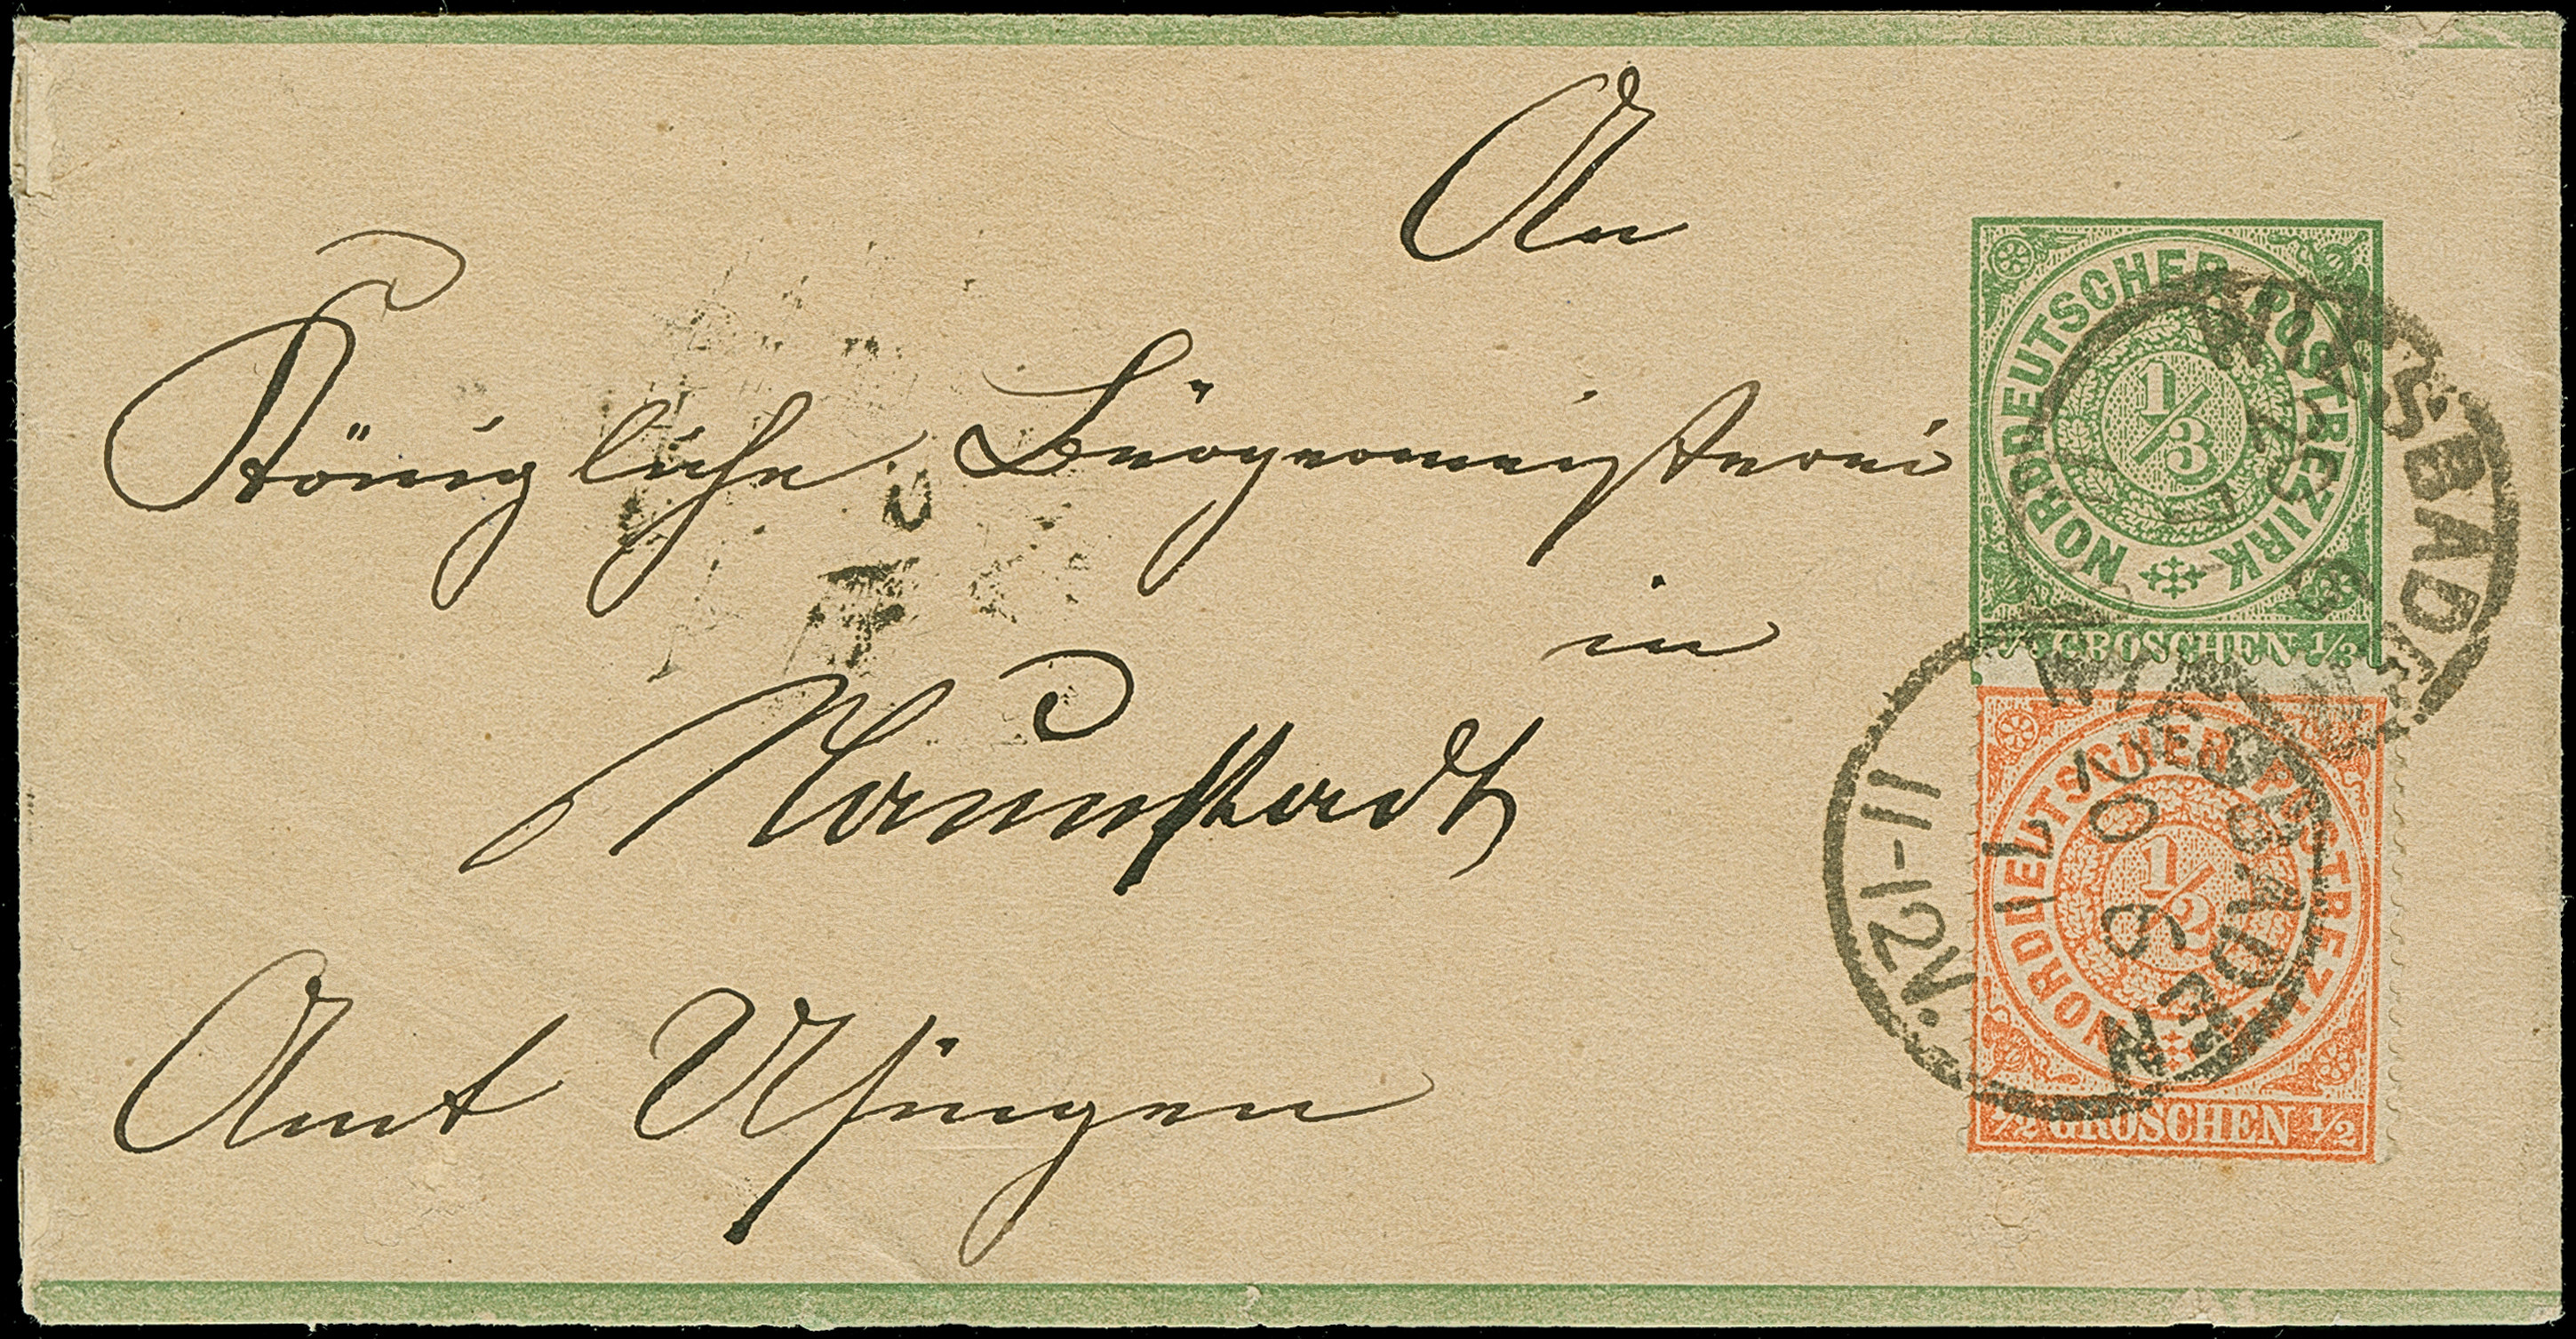 An
Königliche Bürgermeisterei
in
Naunstadt
Amt Usingen
NORDDEUTSCHER POSTBEZIRK
1/3
1/3 GROSCHEN 1/3
WIESBADEN
NORDDEUTSCHER POSTBEZIRK
1/2
1/2 GROSCHEN 1/2
WIESBADEN
N21-11